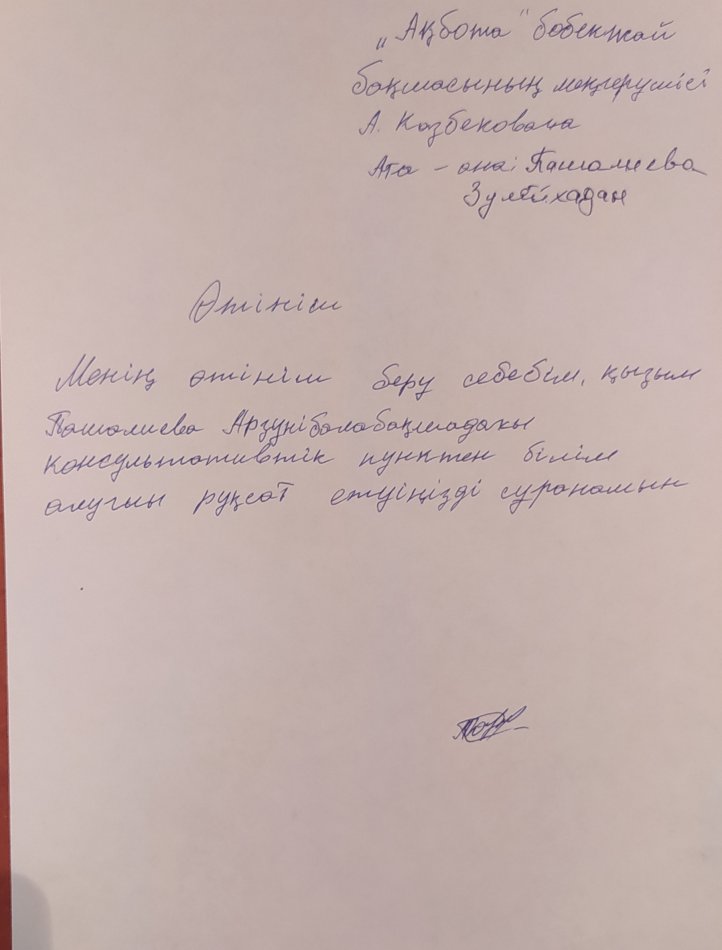 „Ақбота" бөбекжай
бақшасының меңгерушісі
А. Казбековаға
Ата-ана: Пашалиева
Зулейхадан
Өтініш
Менің өтініш беру себебім, қызым
Пашалиева Арзуні балабақшадағы
консультативтік пунктен білім
алуғыы рұқсат етуіңізді сұранамын